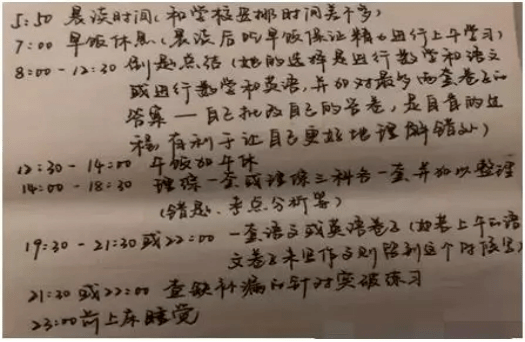 5:50 晨读时间(和学校安排时间差不多)
7:00 早饭休息(晨读后吃早饭保证精力进行上午学习)
8:00-12:30 倒是总结(她的选择是进行数学和语文
或进行数学和英语,并加对最多两套卷子的
答案—自己批改自己的答卷,是自省的过
程,有利于让自己更好地理解错处)
12:30-14:00 午饭加午休
14:00-18:30 理综一套或理综三科各一套,并加以整理
(错题、考点分析等)
19:30-21:30或22:00 一套语文或英语卷子(如若上午的语
文卷子未写作文则留到这个时候写)
21:30或22:00 查缺补漏的针对突破练习
23:00前上床睡觉